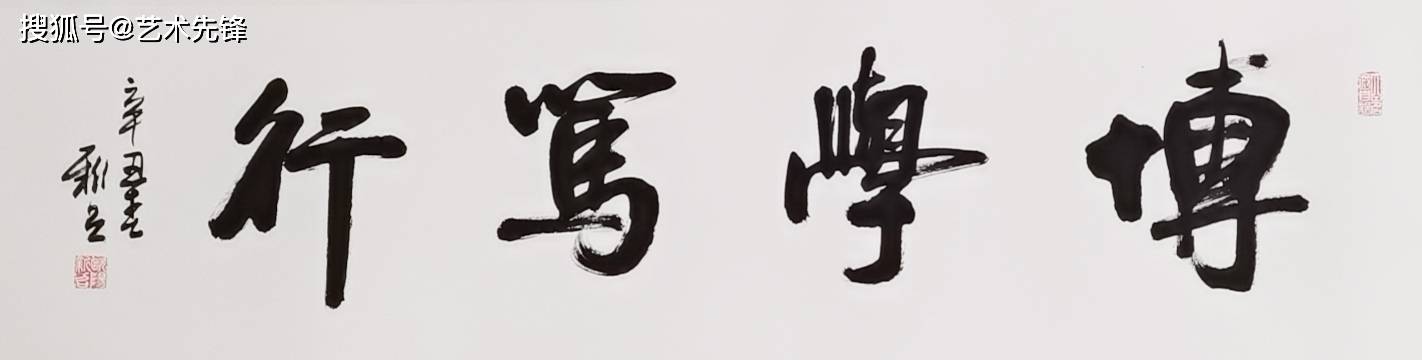 搜狐号@艺术先锋
博學篤行
辛丑春